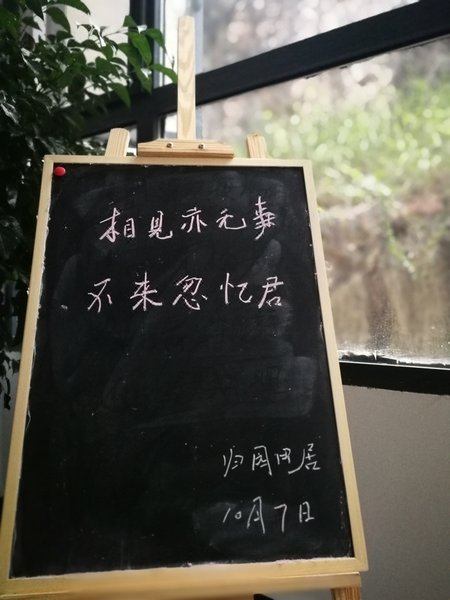 相见亦无事
不来忽忆君
归园田居
10月7日